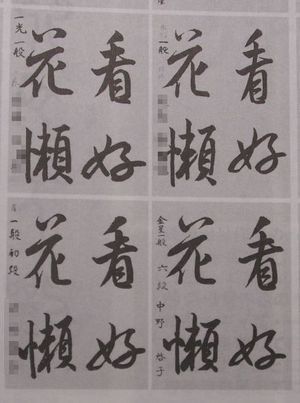 看好
花懶
一般
看好
花懶
一光一般
看好
花懶
金星一般 六段 中野 啓子
看好
花懶
一般 初段